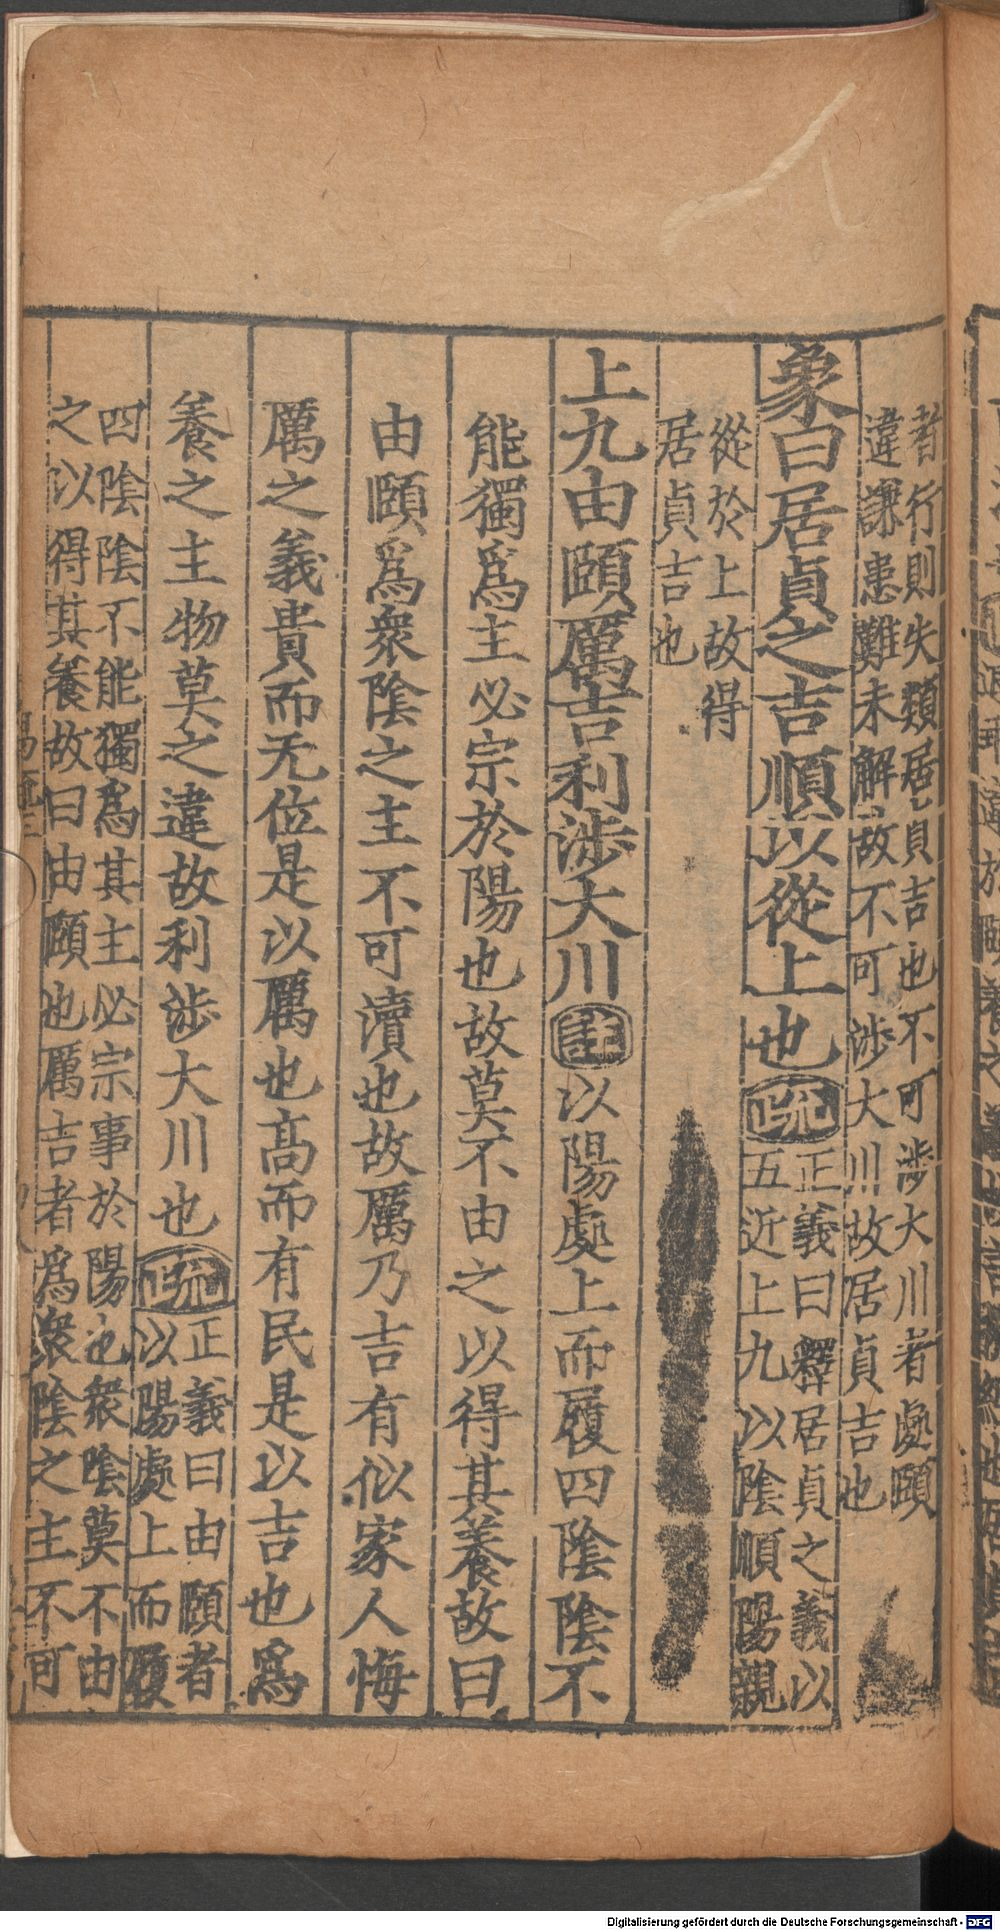 者行則失類居貞吉也不可涉大川者處頤
違謙患難未解故不可涉大川故居貞吉也
象曰居貞之吉順以從上也疏正義曰釋居貞之義以
五近上九以陰順陽親
從於上故得
居貞吉也
上九由頤厲吉利涉大川註以陽處上而履四陰陰不
能獨爲主必宗於陽也故莫不由之以得其養故曰
由頤爲衆陰之主不可瀆也故厲乃吉有似家人悔
厲之義貴而无位是以厲也高而有民是以吉也爲
養之主物莫之違故利涉大川也疏正義曰由頤者
以陽處上而履
四陰陰不能獨爲其主必宗事於陽也衆陰莫不由
之以得其養故曰由頤也厲吉者爲衆陰之主不可
Digitalisierung gefördert durch die Deutsche Forschungsgemeinschaft - DFG